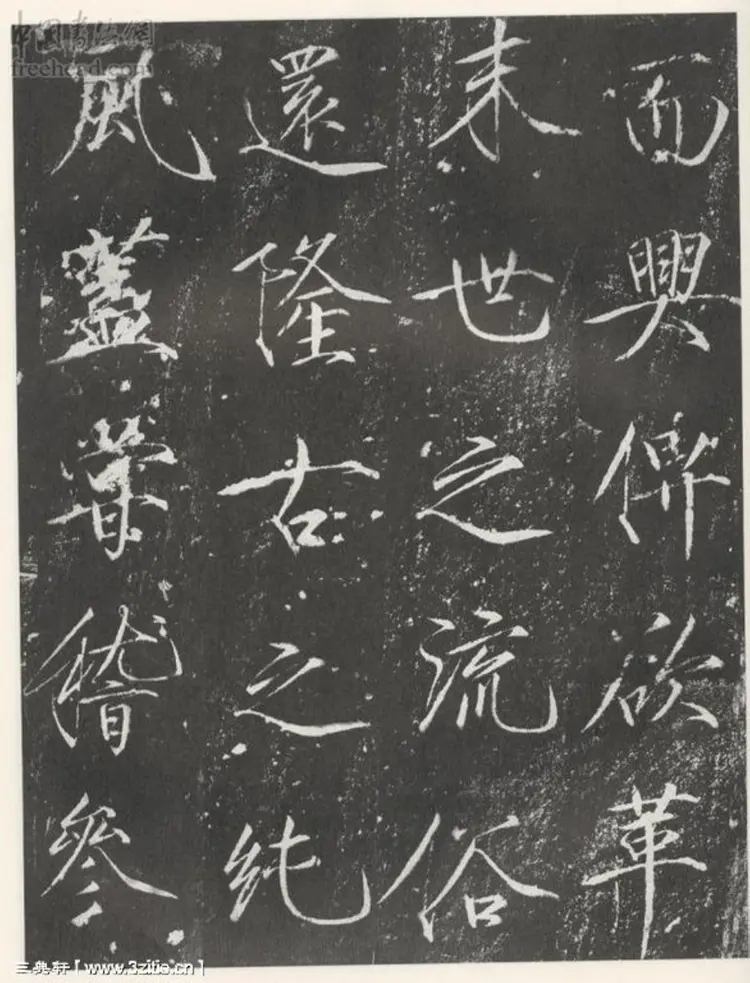 面興俾欲革
末世之流俗
還隆古之純
風蓋嘗稽參
中国书法网
freehead.com
三典轩【www.3zitie.cn】